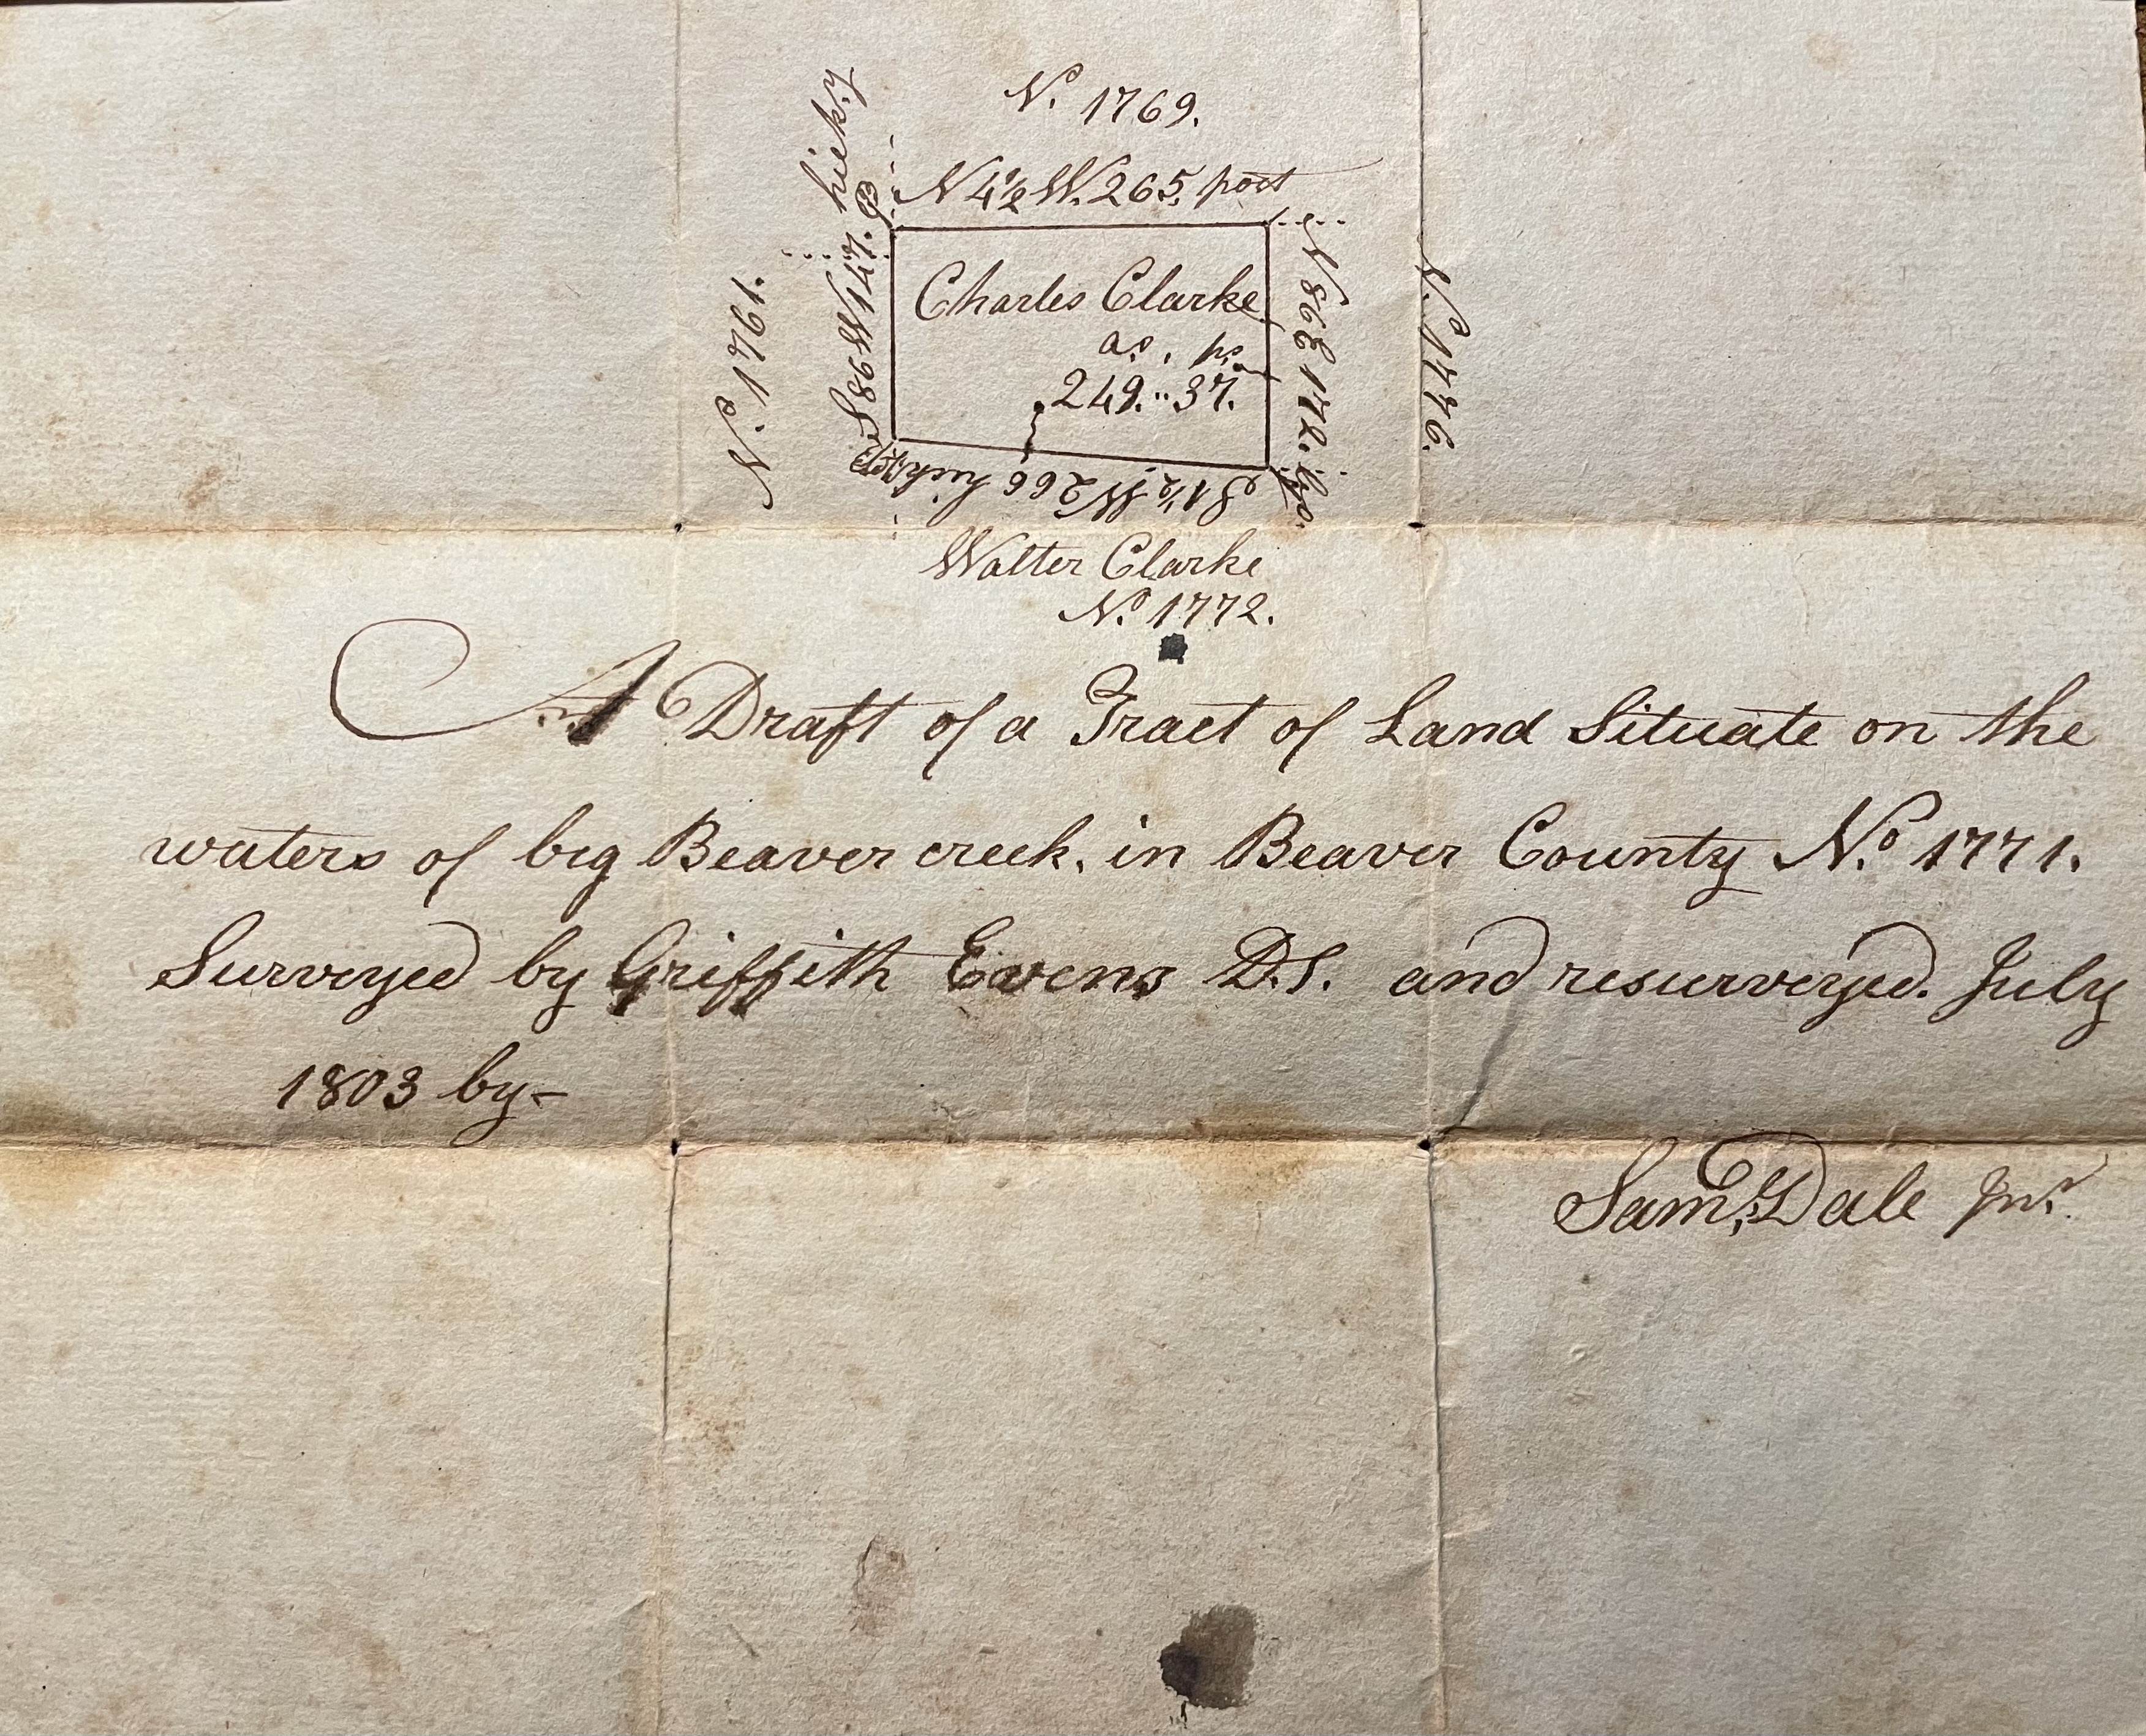 No. 1769.
N 4½ W. 265. post
hick:y
S 86 W 147.
No. 1761.
Charles Clarke
as. ps.
249.. 37.
N 86 E 172.
No. 1776.
S 1½ W 266
Walter Clarke
No. 1772.
A Draft of a Tract of Land Situate on the
waters of big Beaver creek, in Beaver County No. 1771.
Surveyed by Griffith Evens D.S. and resurveyed. July
1803 by-
Saml. Dale Jnr.